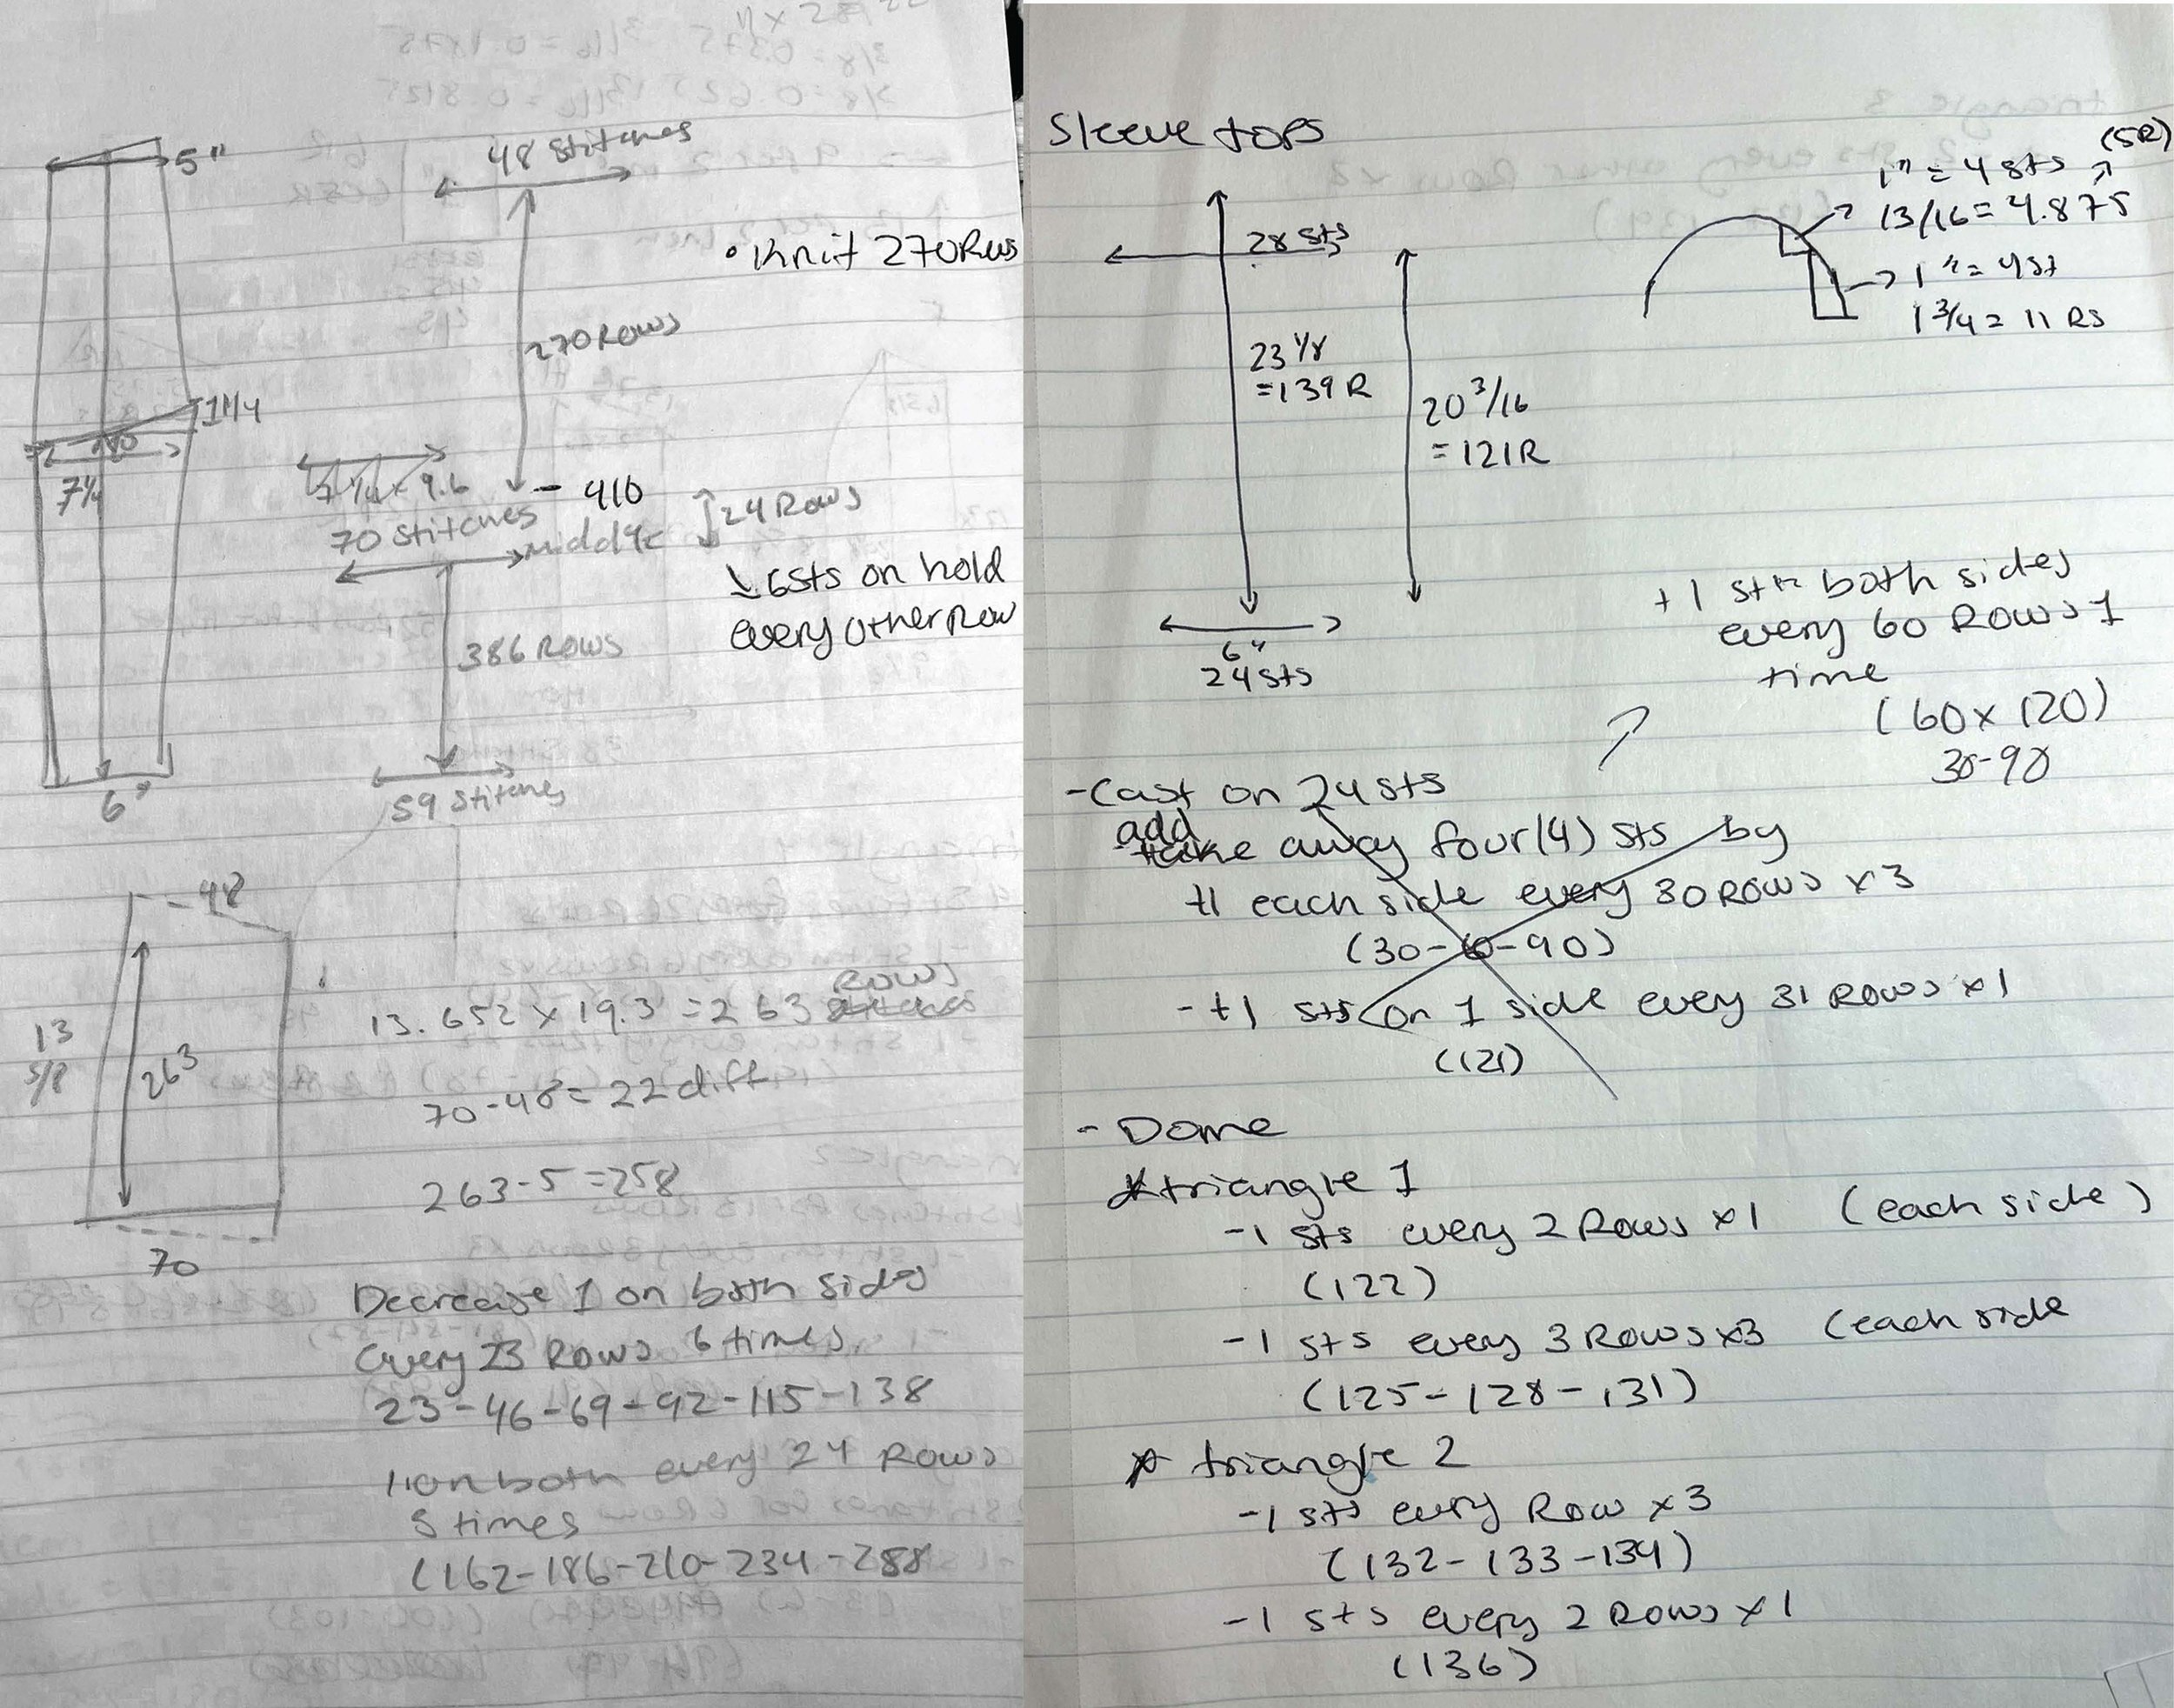 5"
48 Stitches
• Knit 270 Rows
270 Rows
1 1/4
7 1/4
- 410
70 Stitches
middle
24 Rows
↳ 6sts on hold
every other Row
386 ROWS
6"
59 Stitches
48
13
5/8
263
70
Rows
13.652 x 19.3 = 263
70-48 = 22 diff
263-5 = 258
Decrease 1 on both sides
every 23 Rows 6 times
23-46-69-92-115-138
1 on both every 24 Rows
5 times
(162-186-210-234-258
Sleeve tops
(5R)
1" = 4 sts
13/16 = 4.875
1" = 4st
1 3/4 = 11 Rs
28 sts
23 1/8
= 139 R
20 3/16
= 121R
6"
24 sts
+1 st both sides
every 60 Rows 1
time
(60 x 120)
30-90
-Cast on 24 sts
add
take away four(4) sts by
+1 each side every 30 Rows x3
(30-60-90)
-+1 sts on 1 side every 31 Rows x1
(121)
- Dome
*triangle 1
-1 sts every 2 Rows x1 (each side)
(122)
-1 sts every 3 Rows x3 (each side
(125-128-131)
* triangle 2
-1 sts every Row x3
(132-133-134)
-1 sts every 2 Rows x1
(136)